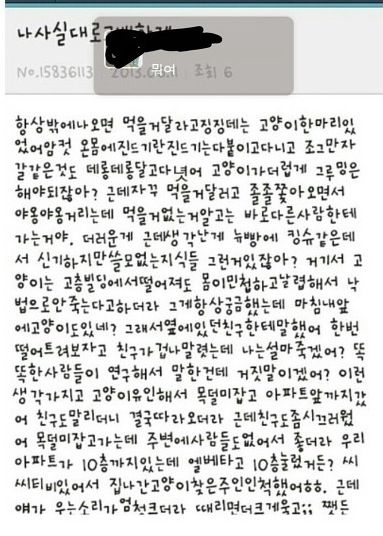 나사실대로
No.15836113 2013.0 조회 6
뭐여
항상밖에나오면 먹을거달라고징징데는 고양이한마리있
었어암컷 온몸에진드기란진드기는다붙이고다니고 조그만자
갈같은것도 데롱데롱달고다녓어 고양이가더럽게 그루밍은
해야되잖아? 근데자꾸 먹을거달러고 졸졸쫓아오면서
야옹야옹거리는데 먹을거없는거알고는 바로다른사람한테
가는거야. 더러운게 근데생각난게 뉴빵에 킹슈같은데
서 신기하지만쓸모없는지식들 그런거있잖아? 거기서 고
양이는 고층빌딩에서떨어져도 몸이민첩하고날렵해서 낙
법으로안죽는다고하더라 그게항상궁금했는데 마침내앞
에고양이도있네? 그래서옆에있던친구한테말했어 한번
떨어트려보자고 친구가겁나말렸는데 나는설마죽겠어? 똑
똑한사람들이 연구해서 말한건데 거짓말이겠어? 이런
생각가지고 고양이유인해서 목덜미잡고 아파트앞까지갔
어 친구도말리더니 결국따라오더라 근데친구도좀시끄러웠
어 목덜미잡고가는데 주변에사람들도없어서 좋더라 우리
아파트가 10층까지있는데 엘베타고 10층눌렀거든? 씨
씨티비있어서 집나간고양이찾은주인인척했어ㅎㅎ. 근데
얘가 우는소리가엄청크더라 때리면더크게욱고;; 쨋든